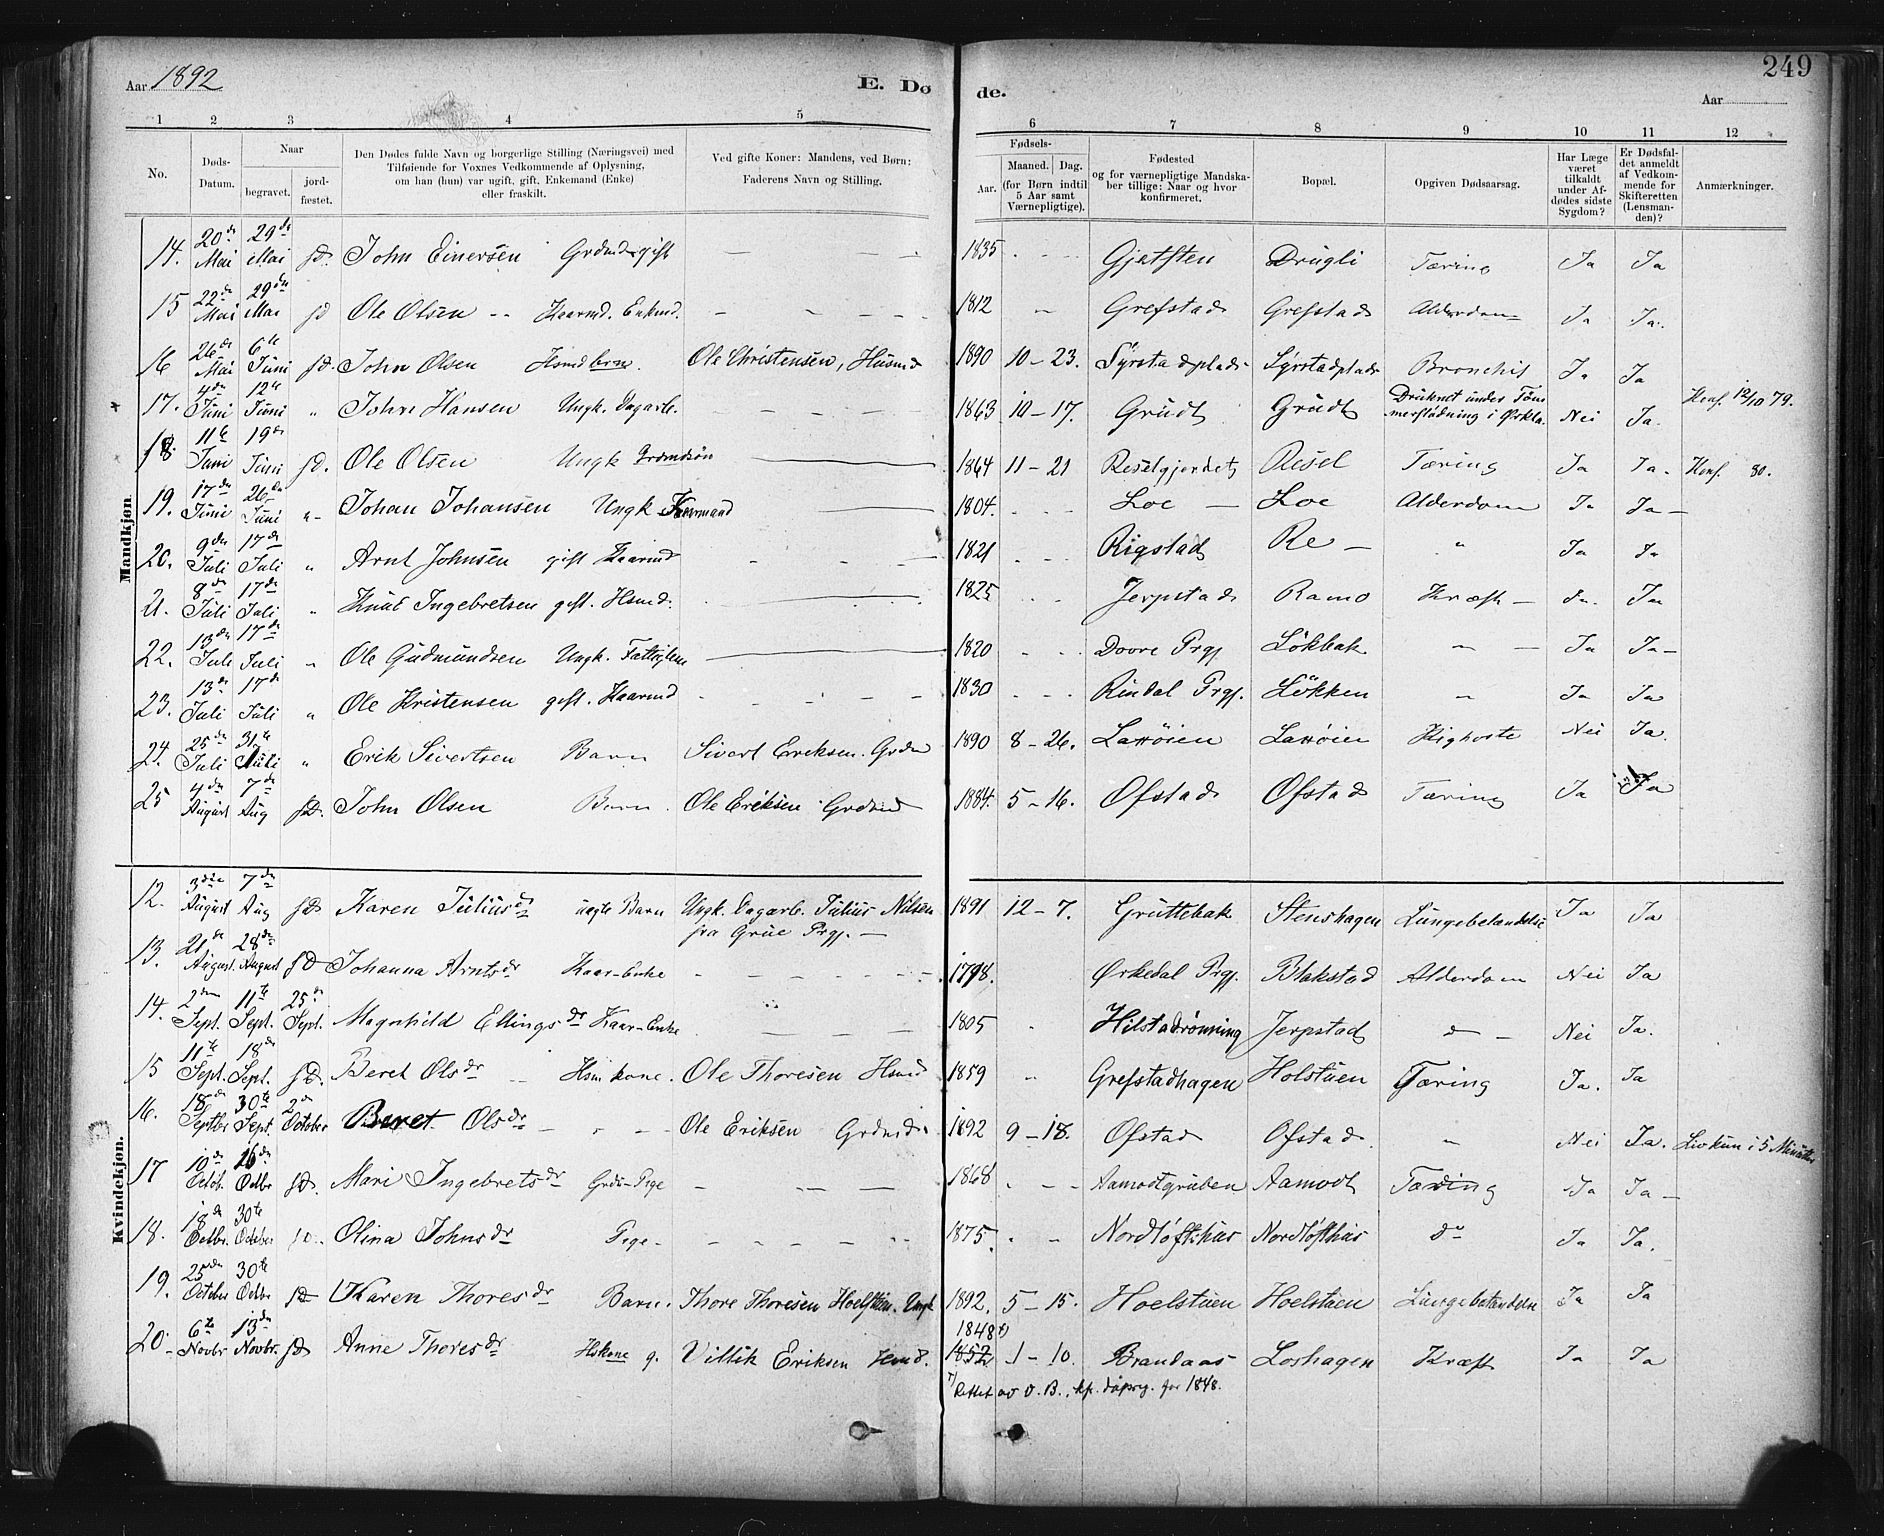 Aar 1892
E. Dø
de.
249
Aar
1 2 3 4 5 6 7 8 9 10 11 12
No.
Døds-Datum.
Naar
begravet. jord-fæstet.
Den Dødes fulde Navn og borgerlige Stilling (Næringsvei) med
Tilføiende for Voxnes Vedkommende af Oplysning,
om han (hun) var ugift, gift, Enkemand (Enke)
eller fraskilt.
Ved gifte Koner: Mandens, ved Børn:
Faderens Navn og Stilling.
Fødsels-
Aar. Maaned. Dag.
(for Børn indtil
5 Aar samt
Værnepligtige).
Fødested
og for værnepligtige Mandska-
ber tillige: Naar og hvor
konfirmeret.
Bopæl.
Opgiven Dødsaarsag.
Har Læge
været
tilkaldt
under Af-
dødes sidste
Sygdom?
Er Dødsfal-
det anmeldt
af Vedkom-
mende for
Skifteretten
(Lensman-
den)?
Anmærkninger.
Mandkjøn.
14. 20de Mai 29de Mai s.D. John Einersen Grdmd gift — — — 1835 Gjetsten Drugli Tæring Ja Ja
15 22de Mai 29de Mai s.D. Ole Olsen Kaarmd. Enkmd. — — — 1812 Grefstad Grefstad Alderdom Ja Ja.
16 26de Mai 6te Juni s.D. John Olsen Hsmd barn. Ole Christensen, Husmd 1890 10-23. Syrstadplads Syrstadplads Bronchit Ja Ja
17. 4de Juni 12te Juni " John Hansen Ungk. Dagarb. — — — 1863 10-17. Grudt Grudt Druknet under Tøm-
merflødning i Orkla. Nei Ja. Konf. 12/10 79.
18. 11te Juni 19de Juni s.D. Ole Olsen Ungk Grdmdsøn — 1864 11-21 Reselgjerdet Resel Tæring Ja Ja. Konf. 80.
19. 17de Juni 26de Juni " Johan Johansen Ungk Kaarmand — 1804. Loe — Loe Alderdom Ja Ja —
20. 9de Juli 17de Juli " Arnt Johnsen gift Kaarmd — — 1821 Rigstad Re — " Ja Ja
21. 8de Juli 17de Juli " Knut Ingebretsen gift. Hsmd. — 1825 Jerpstad Ramo Kræft — Ja. Ja
22. 13de Juli 17de Juli " Ole Gudmundsen Ungk. — 1820 Dovre Prgj Løkbak " — Ja Ja —
23. 13de Juli 17de Juli " Ole Kristensen gift. Kaarmd — — 1830 Rindal Prgj. Løkken " Ja Ja
24. 25de Juli 31te Juli " Erik Sivertsen Barn Sivert Eriksen. Grdm 1890 8-26. Larrøien Larrøien Kighoste Nei Ja.
25 4de August 7de Aug s.D. John Olsen Barn. Ole Eriksen Grdmd 1884. 5-16. Ofstad Ofstad Tæring Ja Ja
Kvindekjøn.
12. 3die August 7de Aug s.D. Karen Juliusdr uegte Barn Ungk. Dagarb. Julius Nilsen
fra Grue Prgj. — 1891 12-7. Gruttebak Stenshagen Lungebetændelse Ja Ja
13. 21de August. 28de August s.D. Johanna Arntsdr Kaar-Enke — — — 1798. Ørkedal Prgj. Blakstad Alderdom Nei Ja
14. 2den Sept. 11te Sept. 25de Sept. Magnhild Ellingsdr Kaar-Enke — — 1805 Hilstadrønning Jerpstad do — Nei Ja.
15 11te Sept. 18de Sept. s.D. Beret Olsdr Hsm kone. Ole Thoresen Hsmd 1859 Grefstadhagen Holstuen Tæring Ja. Ja
16. 18de Septbr 30te Sept. 2de October Beret Olsdr — " — Ole Eriksen Grdmd 1892 9-18. Ofstad Ofstad " Nei Ja. Levkun i 5 Minutter
17 10de Octob. 16de Octbr s.D. Mari Ingebretsdr Grdm-Pige — — — 1868 Aamodtgruben Aamodt Tæring Ja Ja —
18. 18de Octbr. 30te October s.D. Olina Johnsdr Pige — — — — 1875. Nordløfthus Nordløfthus do Ja Ja.
19. 25de October 30te Octbr s.D. Karen Thoresdr Barn. Thore Thoresen Hoelstuen. Ungk 1892. 5-15. Hoelstuen Hoelstuen Lungebetændelse Ja Ja
20. 6te Novbr 13de Novbr. s.D. Anne Thoresdr Hskone g. Eriksen Hsmd. 1848 *) 1852 1-10. Brandaas Loshagen Kræft Ja Ja
*) Rettet av v. B., kfr. dåpsrg. for 1848.